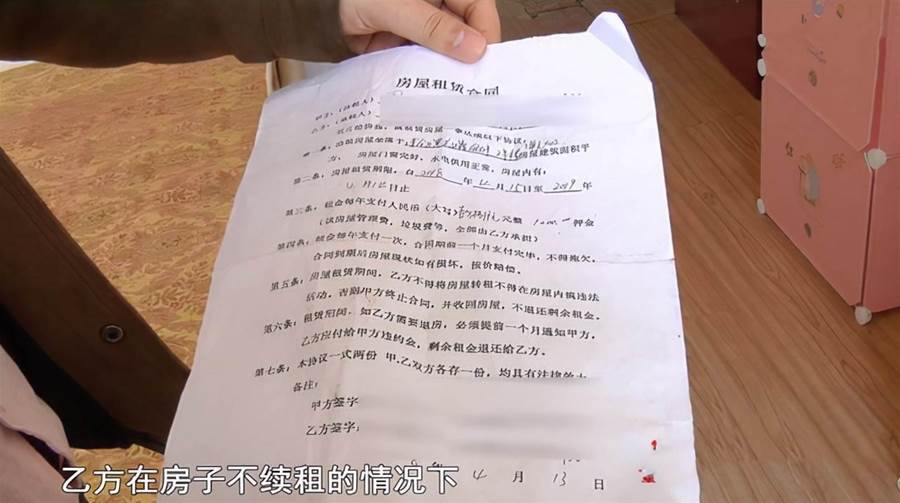 房屋租赁合同
甲方：（出租人）
乙方：（承租人）
第一条：出租房屋坐落于 房屋建筑面积平
方， 房屋门窗完好，水电供用正常，房屋内有：
第二条：房屋租赁期限，自2018年4月15日至2019年
月 日止
第三条：租金每年支付人民币（大写 元整 押金
（该房屋管理费，垃圾费等，全部由乙方承担）
第四条：租金每年支付一次，合同期前一个月支付完毕，不得拖欠，
合同到期后房屋现状如有损坏，按价赔偿。
第五条：房屋租赁期间，乙方不得将房屋转租不得在房屋内搞违法
活动，否则甲方终止合同，并收回房屋，不退还剩余租金。
第六条：租赁期间，如乙方需要退房，必须提前一个月通知甲方，
乙方应付给甲方违约金，剩余租金退还给乙方。
第七条：本协议一式两份 甲、乙双方各存一份，均具有法律效力
备注：
甲方签字
乙方签字：
4 月 13 日
乙方在房子不续租的情况下